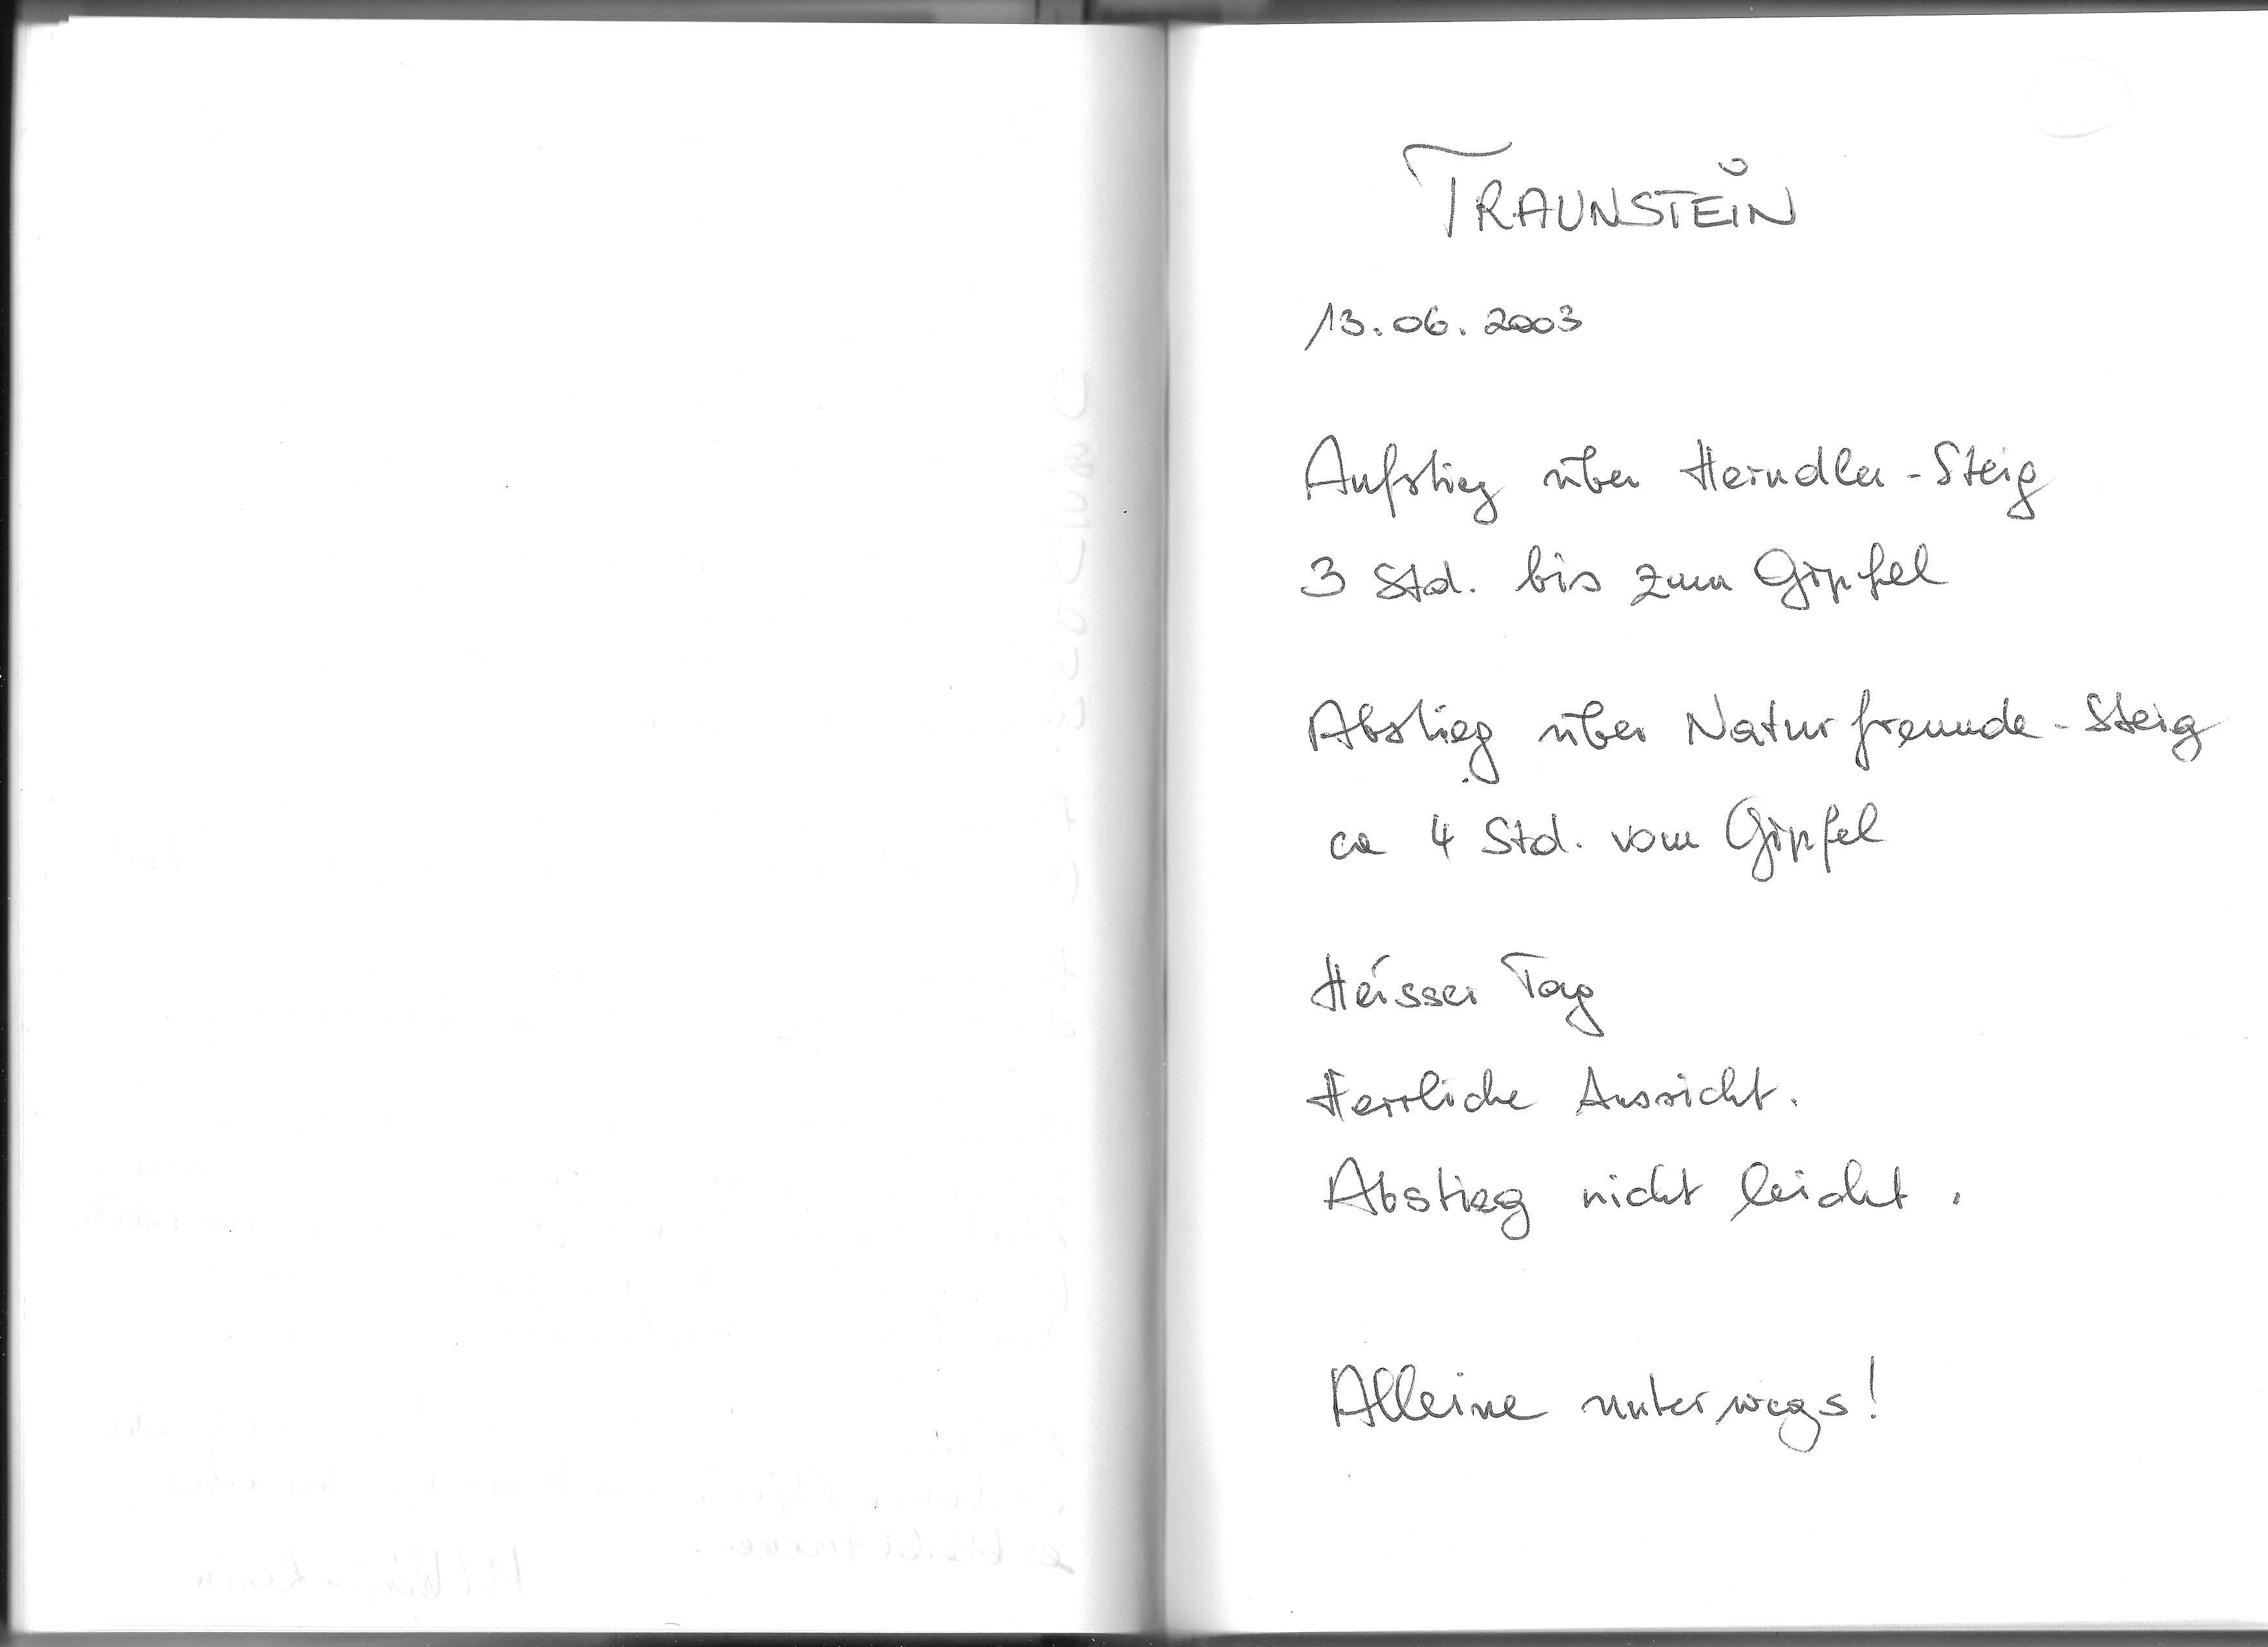 TRAUNSTEIN
13.06.2003
Aufstieg über Herndler-Steig
3 Std. bis zum Gipfel
Abstieg über Naturfreunde-Steig
ca 4 Std. vom Gipfel
Heisser Tag
Herrliche Aussicht.
Abstieg nicht leicht.
Alleine unterwegs!